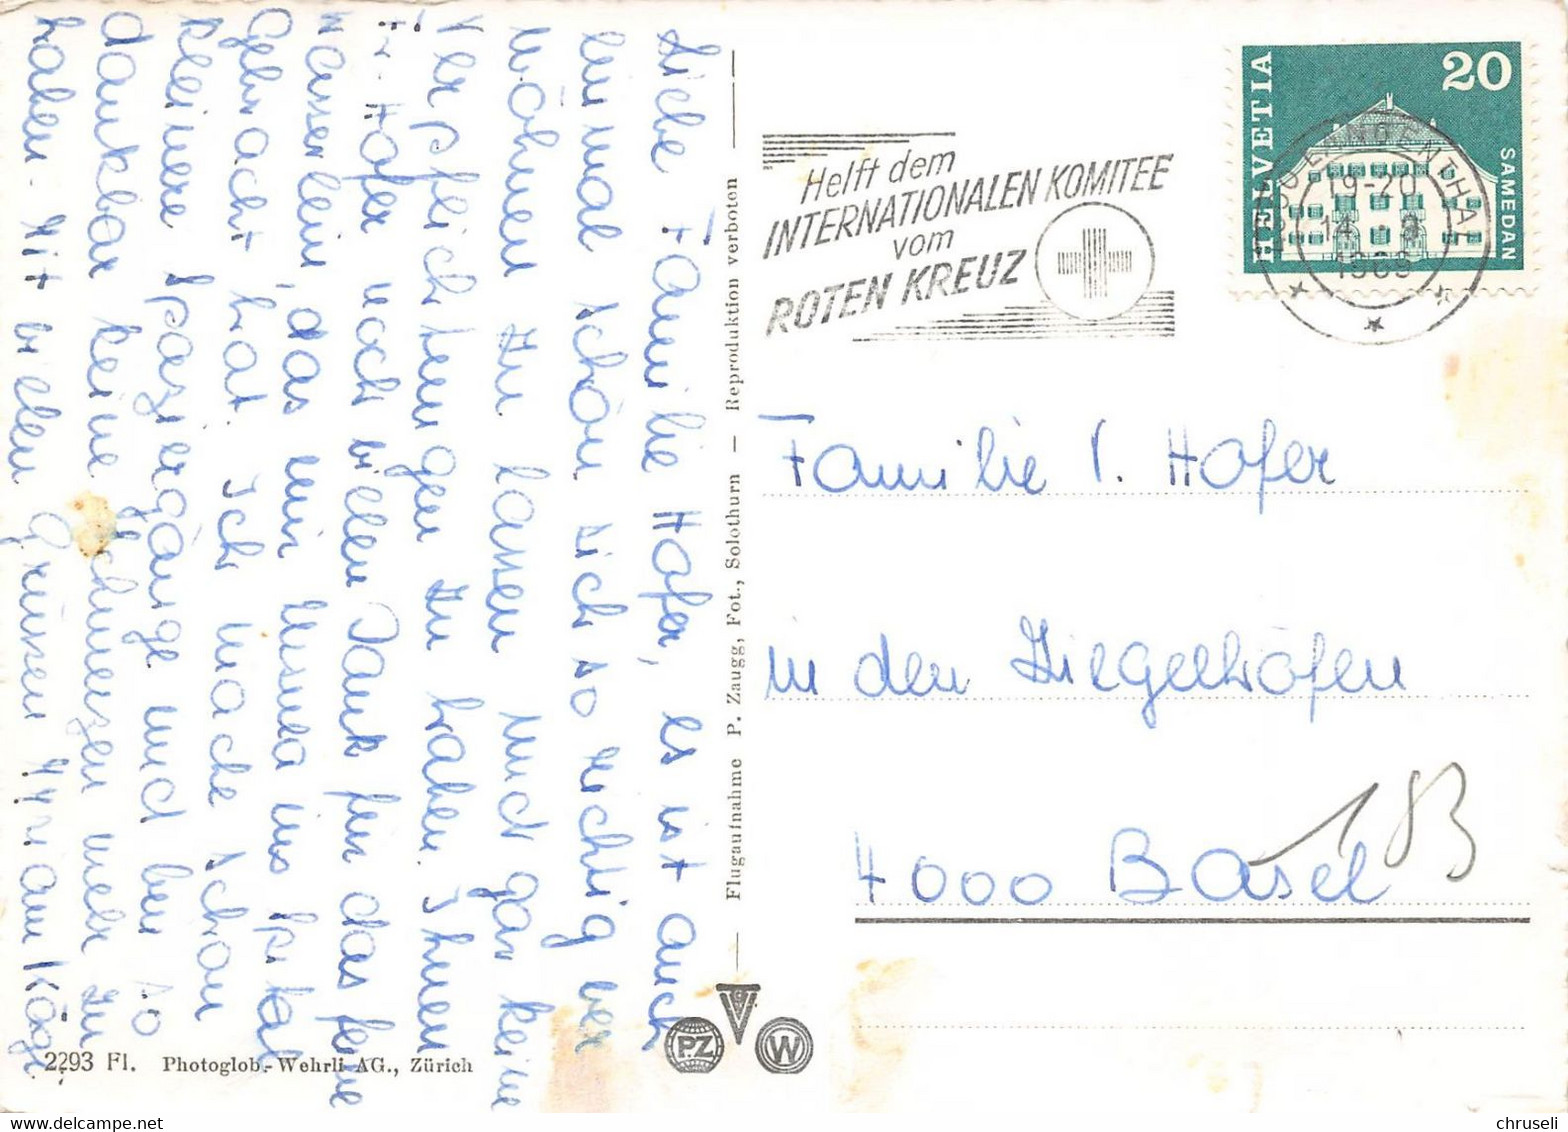 Liebe Familie Hofer, es ist auch
einmal schön sich so richtig ver
wöhnen zu lassen und gar keine
Verpflichtungen zu haben. Ihnen
Fr. Hofer noch vielen Dank für das feine
das mir Ursula ins Spital
gebracht hat. Ich mache schon
kleinere Spaziergänge und bin so
dankbar keine Schmerzen mehr zu
haben. Mit vielen Grüssen Myriam Kägi
2293 Fl. Photoglob-Wehrli AG., Zürich
Flugaufnahme P. Zaugg, Fot., Solothurn — Reproduktion verboten
PZ
V
W
Helft dem
INTERNATIONALEN KOMITEE
vom
ROTEN KREUZ
HELVETIA
20
SAMEDAN
LANGENTHAL
19-20
14
Familie I. Hofer
in den Ziegelhöfen
183
4000 Basel
chruseli